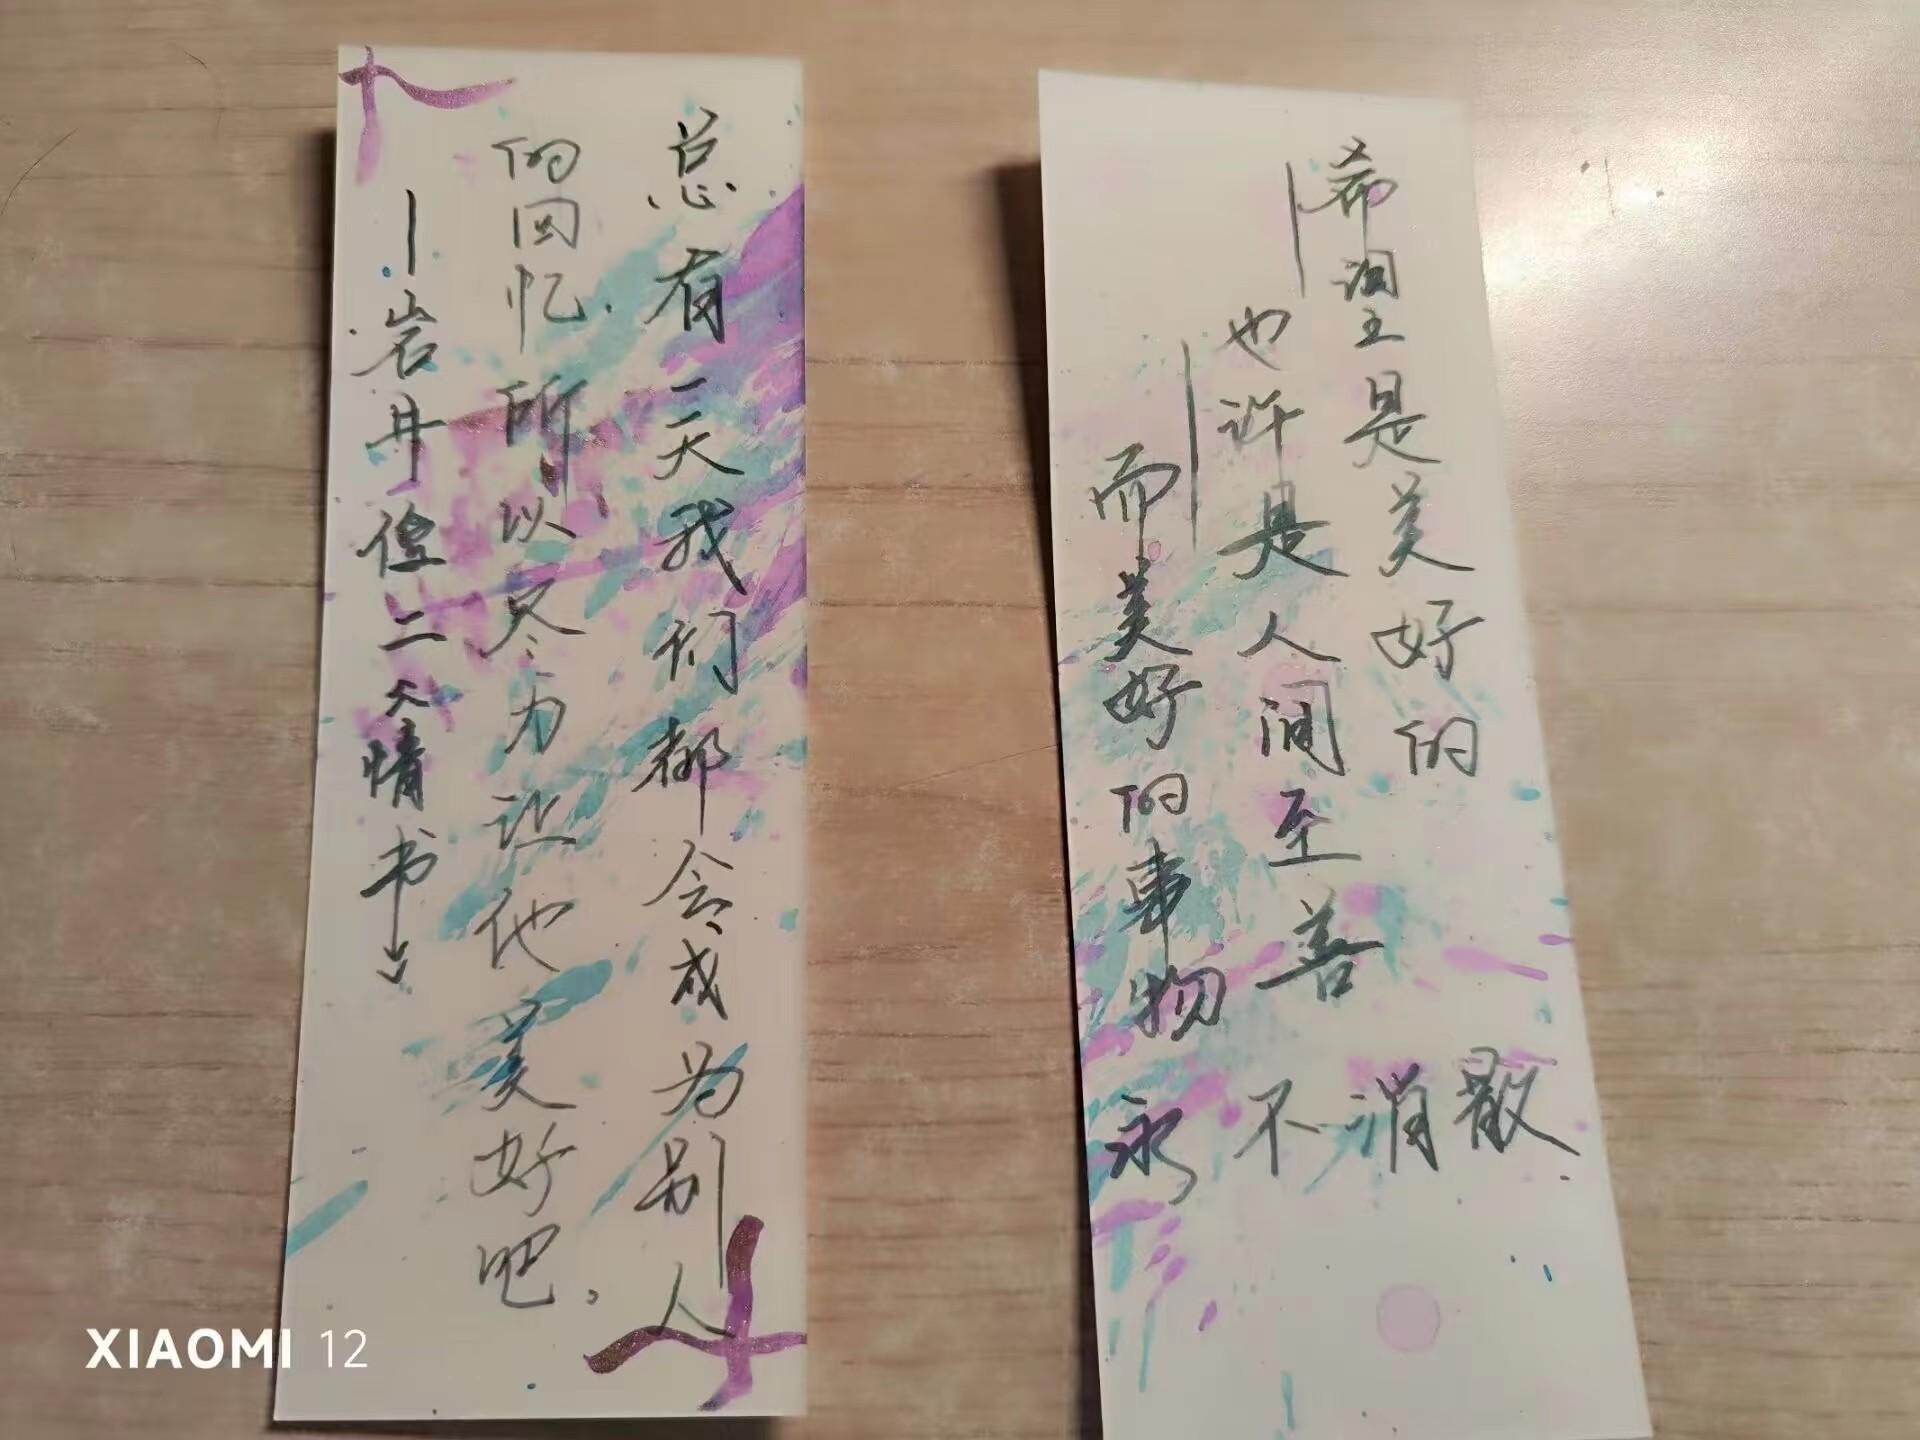 总有一天我们都会成为别人
的回忆.所以尽力让他美好吧.
—岩井俊二《情书》
希望是美好的
也许是人间至善
而美好的事物
永不消散
XIAOMI 12